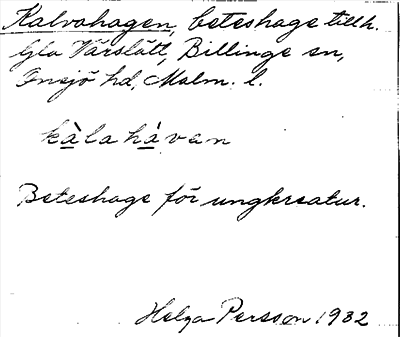 Kalvahagen, beteshage till h.
Gla Värslätt, Billinge sn,
Onsjö hd, Malm. l.
kàlahàvan
Beteshage för ungkreatur.
Helga Persson 1932